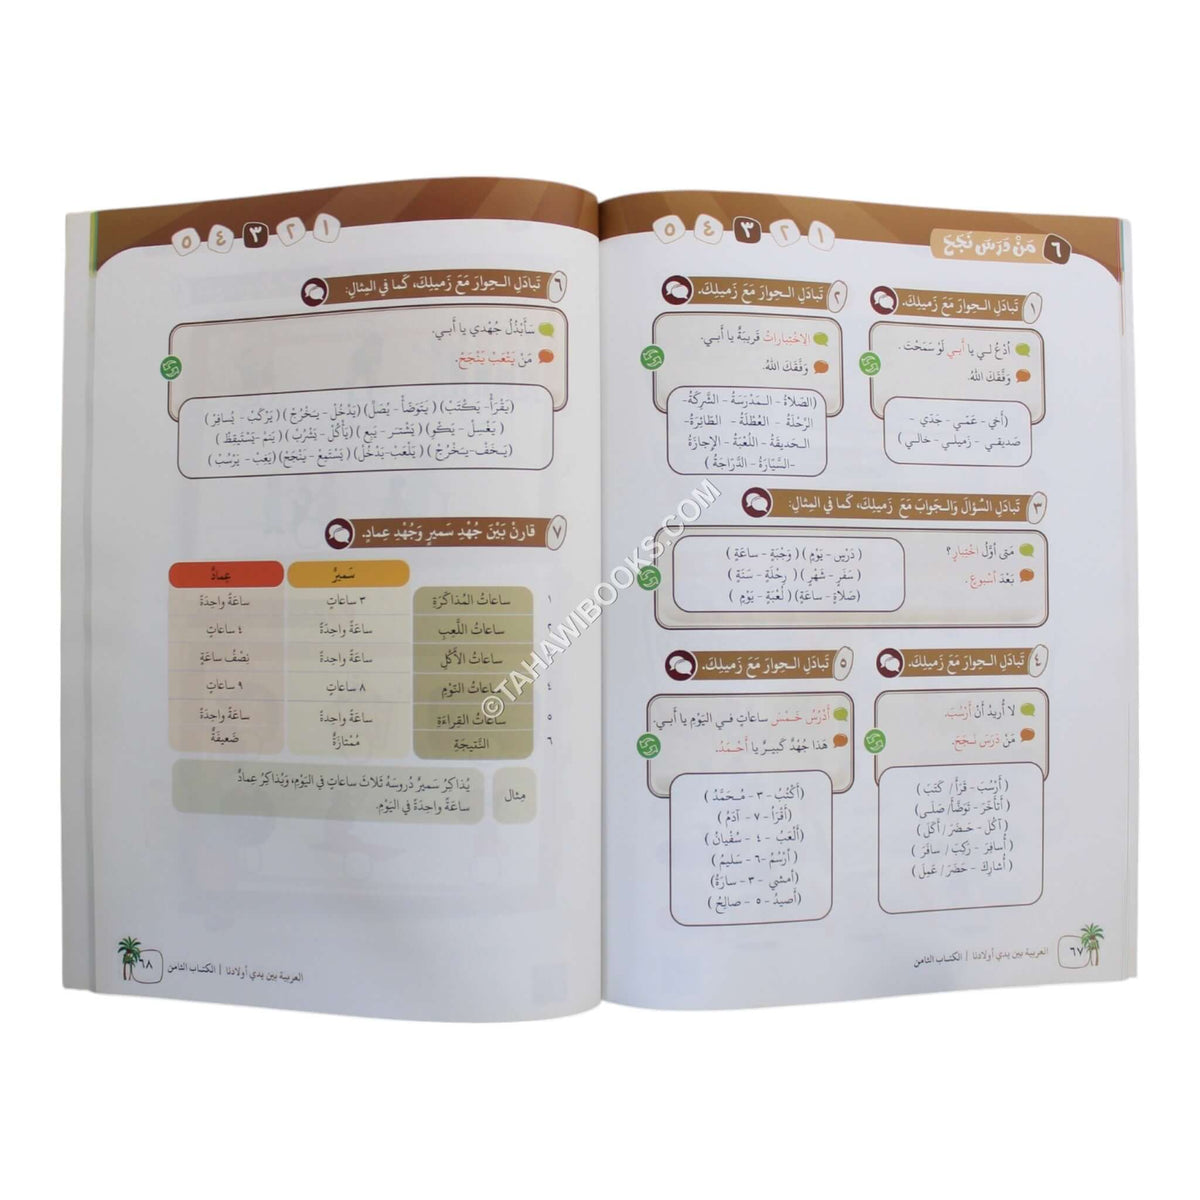 ٦ مَنْ دَرَسَ نَجَحَ
١ ٢ ٣ ٤ ٥
١ تَبادَلِ الـحِوارَ مَعَ زَميلِكَ.
اُدْعُ لـي يا أَبي لَوْ سَمَحْتَ.
وَفَّقَكَ اللهُ.
(أَخي - عَمّي - جَدّي -
صَديقـي - زَميلـي - خالـي)
٢ تَبادَلِ الـحِوارَ مَعَ زَميلِكَ.
الاِخْتِباراتُ قَريبَةٌ يا أَبـي.
وَفَّقَكَ اللهُ.
(الصَّلاةُ - الـمَدْرَسَةُ - الشَّرِكَةُ
الرِّحْلَةُ - العُطْلَةُ - الطّائِرَةُ-
الـحَديقَةُ - اللُّعْبَةُ - الإِجازَةُ
-السَّيّارَةُ - الدَّرّاجَةُ)
٣ تَبادَلِ السُّؤالَ وَالـجَوابَ مَعَ زَميلِكَ، كَما في الـمِثالِ:
مَتى أَوَّلُ اخْتِبارٍ؟
بَعْدَ أُسْبوعٍ.
(دَرْسٍ - يَوْمٍ) (وَجْبَةٍ - ساعَةٍ)
(سَفَرٍ - شَهْرٍ) (رِحْلَةٍ - سَنَةٍ)
(صَلاةٍ - ساعَةٍ) (لُعْبَةٍ - يَوْمٍ)
٤ تَبادَلِ الـحِوارَ مَعَ زَميلِكَ.
لا أُريدُ أَنْ أَرْسُبَ.
مَنْ دَرَسَ نَـجَحَ.
(أَرْسُبَ - قَرَأَ/ كَتَبَ)
(أَتَأَخَّرَ - تَوَضَّأَ/ صَلّـى)
(آكُلَ - حَـضَرَ/ أَكَلَ)
(أُسافِرَ - رَكِبَ/ سافَرَ)
(أُشارِكَ - حَضَرَ/ عَمِلَ)
٥ تَبادَلِ الـحِوارَ مَعَ زَميلِكَ.
أَدْرُسُ خَـمْسَ ساعاتٍ فـي اليَوْمِ يا أَبـي.
هَذا جُهْدٌ كَبيـرٌ يا أَحْـمَدُ.
(أَكْتُبُ - ٣ - مُـحَمَّدُ)
(أَقْرَأُ - ٧ - آدَمُ)
(أَلْعَبُ - ٤ - سُفْيانُ)
(أَرْسُمُ - ٦ - سَليمُ)
(أَمْشي - ٣ - سارَةُ)
(أَصيدُ - ٥ - صالِحُ)
٦٧ العربية بين يدي أولادنا | الكتـاب الثامن
١ ٢ ٣ ٤ ٥
٦ تَبادَلِ الـحِوارَ مَعَ زَميلِكَ، كَما في المِثالِ:
سَأَبْذُلُ جُهْدي يا أَبـي.
مَنْ يَتْعَبْ يَنْجَحْ.
(يَقْرَأْ- يَكْتُبْ) (يَتَوَضَّأْ - يُصَلِّ) (يَدْخُلْ- يَـخْرُجْ) (يَرْكَبْ - يُسافِرْ)
(يَغْسِلْ - يَكْوِ) (يَشْتَـرِ - يَبِعْ) (يَأْكُلْ - يَشْرَبْ) (يَنَمْ -يَسْتَيْقِظْ)
(يَـخَفْ-يَـخْرُجْ) (يَلْعَبْ-يَدْخُلْ) (يَسْتَمِعْ - يَنْجَحْ) (يَغِبْ - يَرْسُبْ)
٧ قارِنْ بَيْنَ جُهْدِ سَميرٍ وَجُهْدِ عِمادٍ.
سَميرٌ عِمادٌ
١ ساعاتُ المُذاكَرَةِ ٣ ساعاتٍ ساعَةً واحِدَةً
ساعاتُ اللَّعِبِ ساعَةً واحِدَةً ٤ ساعاتٍ
ساعاتُ الأَكْلِ ساعَةً واحِدَةً نِصْفُ ساعَةٍ
٤ ساعاتُ النَّوْمِ ٨ ساعاتٍ ٩ ساعاتٍ
٥ ساعاتُ القِراءَةِ ساعَةً واحِدَةً ساعَةً واحِدَةً
٦ النَّتيجَةِ مُمْتازَةٌ ضَعيفَةٌ
مِثال يُذاكِرُ سَميرٌ دُروسَهُ ثَلاثَ ساعاتٍ في اليَوْمِ، وَيُذاكِرُ عِمادٌ
ساعَةً واحِدَةً في اليَوْمِ.
العربية بين يدي أولادنا | الكتـاب الثامن ٦٨
©TAHAWIBOOKS.COM